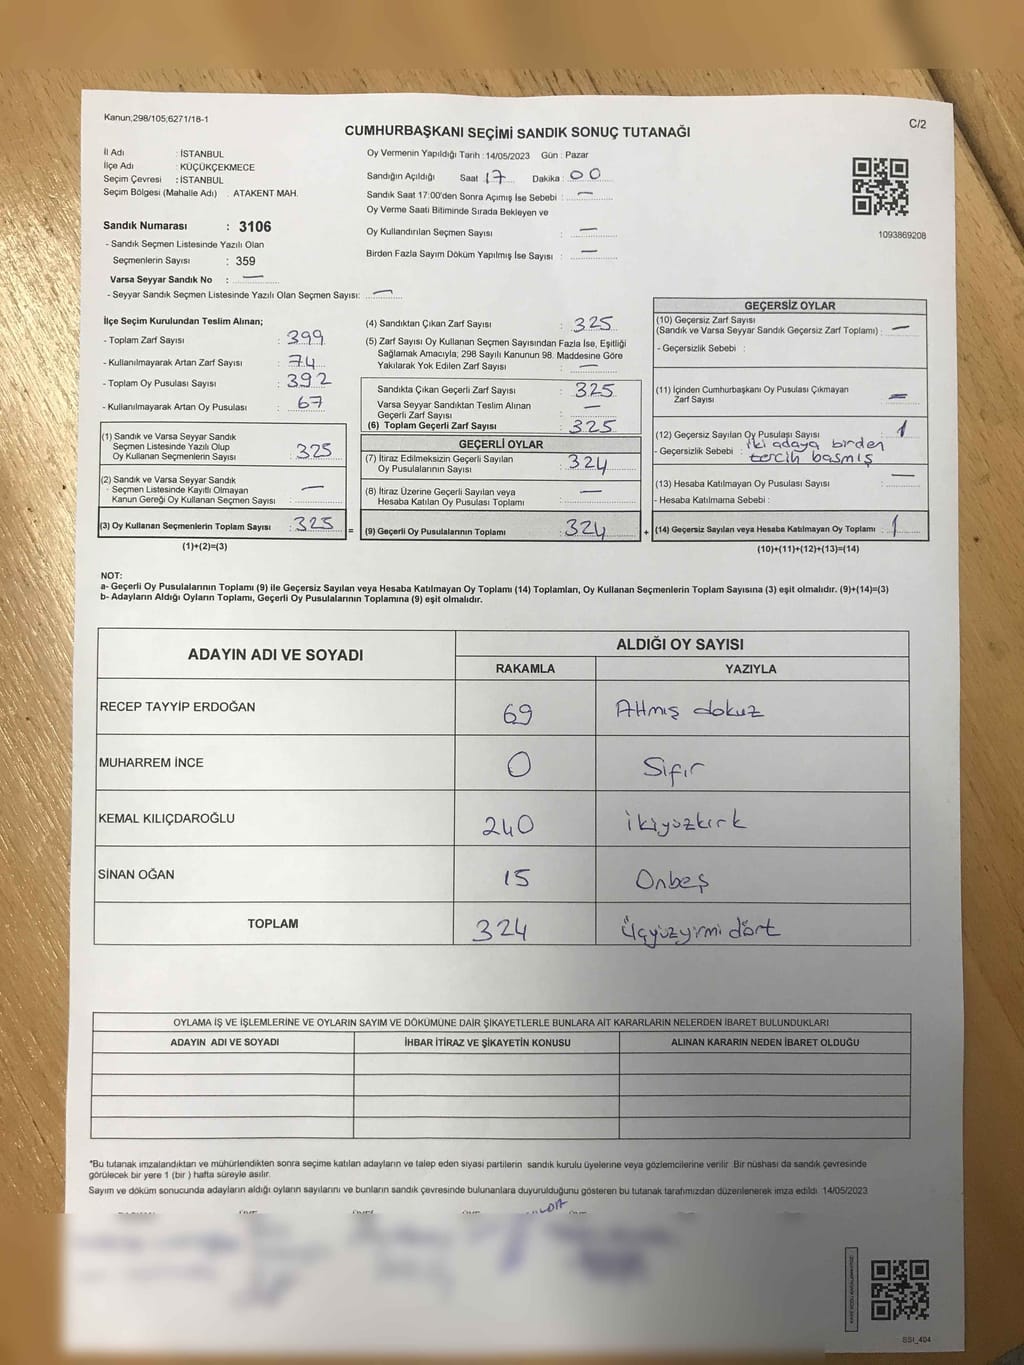 Kanun;298/105;6271/18-1
C/2
CUMHURBAŞKANI SEÇİMİ SANDIK SONUÇ TUTANAĞI
İl Adı : İSTANBUL
İlçe Adı : KÜÇÜKÇEKMECE
Seçim Çevresi : İSTANBUL
Seçim Bölgesi (Mahalle Adı) : ATAKENT MAH.
Sandık Numarası : 3106
- Sandık Seçmen Listesinde Yazılı Olan
Seçmenlerin Sayısı : 359
Varsa Seyyar Sandık No : —
- Seyyar Sandık Seçmen Listesinde Yazılı Olan Seçmen Sayısı: —
Oy Vermenin Yapıldığı Tarih : 14/05/2023 Gün : Pazar
Sandığın Açıldığı Saat 17 Dakika : 00
Sandık Saat 17:00'den Sonra Açımış İse Sebebi : —
Oy Verme Saati Bitiminde Sırada Bekleyen ve
Oy Kullandırılan Seçmen Sayısı : —
Birden Fazla Sayım Döküm Yapılmış İse Sayısı : —
1093869208
İlçe Seçim Kurulundan Teslim Alınan;
- Toplam Zarf Sayısı : 399
- Kullanılmayarak Artan Zarf Sayısı : 74
- Toplam Oy Pusulası Sayısı : 392
- Kullanılmayarak Artan Oy Pusulası : 67
(1) Sandık ve Varsa Seyyar Sandık
Seçmen Listesinde Yazılı Olup
Oy Kullanan Seçmenlerin Sayısı : 325
(2) Sandık ve Varsa Seyyar Sandık
Seçmen Listesinde Kayıtlı Olmayan
Kanun Gereği Oy Kullanan Seçmen Sayısı : —
(3) Oy Kullanan Seçmenlerin Toplam Sayısı : 325 =
(1)+(2)=(3)
(4) Sandıktan Çıkan Zarf Sayısı : 325
(5) Zarf Sayısı Oy Kullanan Seçmen Sayısından Fazla İse, Eşitliği
Sağlamak Amacıyla; 298 Sayılı Kanunun 98. Maddesine Göre
Yakılarak Yok Edilen Zarf Sayısı : —
Sandıkta Çıkan Geçerli Zarf Sayısı : 325
Varsa Seyyar Sandıktan Teslim Alınan
Geçerli Zarf Sayısı : —
(6) Toplam Geçerli Zarf Sayısı : 325
GEÇERLİ OYLAR
(7) İtiraz Edilmeksizin Geçerli Sayılan
Oy Pusulalarının Sayısı : 324
(8) İtiraz Üzerine Geçerli Sayılan veya
Hesaba Katılan Oy Pusulası Toplamı : —
(9) Geçerli Oy Pusulalarının Toplamı : 324 +
GEÇERSİZ OYLAR
(10) Geçersiz Zarf Sayısı
(Sandık ve Varsa Seyyar Sandık Geçersiz Zarf Toplamı) : —
- Geçersizlik Sebebi :
(11) İçinden Cumhurbaşkanı Oy Pusulası Çıkmayan
Zarf Sayısı : —
(12) Geçersiz Sayılan Oy Pusulası Sayısı : 1
- Geçersizlik Sebebi : iki adaya birden
tercih basmış
(13) Hesaba Katılmayan Oy Pusulası Sayısı : —
- Hesaba Katılmama Sebebi :
(14) Geçersiz Sayılan veya Hesaba Katılmayan Oy Toplamı : 1
(10)+(11)+(12)+(13)=(14)
NOT:
a- Geçerli Oy Pusulalarının Toplamı (9) ile Geçersiz Sayılan veya Hesaba Katılmayan Oy Toplamı (14) Toplamları, Oy Kullanan Seçmenlerin Toplam Sayısına (3) eşit olmalıdır. (9)+(14)=(3)
b- Adayların Aldığı Oyların Toplamı, Geçerli Oy Pusulalarının Toplamına (9) eşit olmalıdır.
ADAYIN ADI VE SOYADI ALDIĞI OY SAYISI
RAKAMLA YAZIYLA
RECEP TAYYİP ERDOĞAN 69 Altmış dokuz
MUHARREM İNCE 0 Sıfır
KEMAL KILIÇDAROĞLU 240 ikiyüzkırk
SİNAN OĞAN 15 Onbeş
TOPLAM 324 üçyüzyirmi dört
OYLAMA İŞ VE İŞLEMLERİNE VE OYLARIN SAYIM VE DÖKÜMÜNE DAİR ŞİKAYETLERLE BUNLARA AİT KARARLARIN NELERDEN İBARET BULUNDUKLARI
ADAYIN ADI VE SOYADI İHBAR İTİRAZ VE ŞİKAYETİN KONUSU ALINAN KARARIN NEDEN İBARET OLDUĞU
*Bu tutanak imzalandıktan ve mühürlendikten sonra seçime katılan adayların ve talep eden siyasi partilerin sandık kurulu üyelerine veya gözlemcilerine verilir. Bir nüshası da sandık çevresinde
görülecek bir yere 1 (bir ) hafta süreyle asılır.
Sayım ve döküm sonucunda adayların aldığı oyların sayılarını ve bunların sandık çevresinde bulunanlara duyurulduğunu gösteren bu tutanak tarafımızdan düzenlenerek imza edildi. 14/05/2023
SSI_404